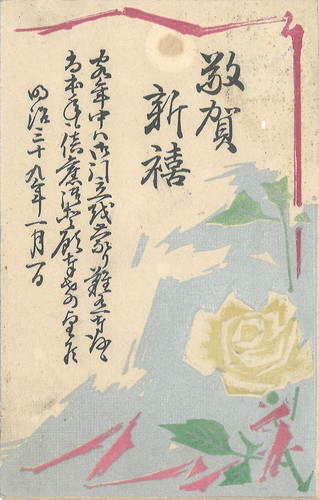 敬賀
新禧
客年中ハ御引立を蒙り難有奉謝候
尚本年も倍舊御愛顧奉希望候
明治三十九年一月一日